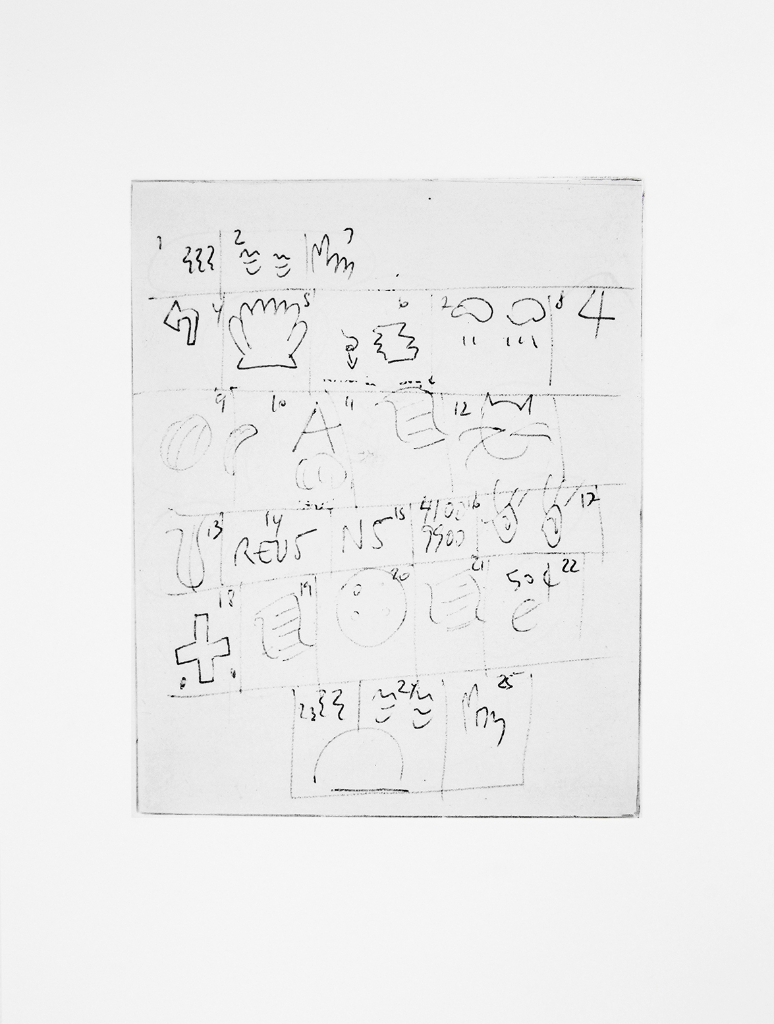 1 2 3
4 5 6 7 8 4
9 10 A 11 12
13 14 REUS NS 15 4100 16 17
9900
18 19 20 21 50¢ 22
e
23 24 25